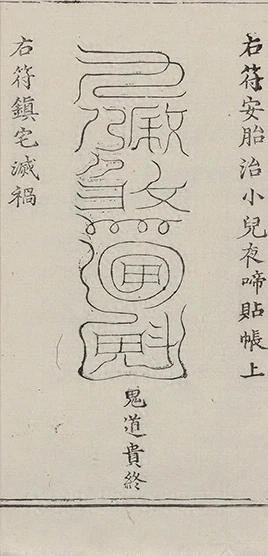 右符安胎治小兒夜啼貼帳上
鬼道貴終
右符鎮宅滅禍